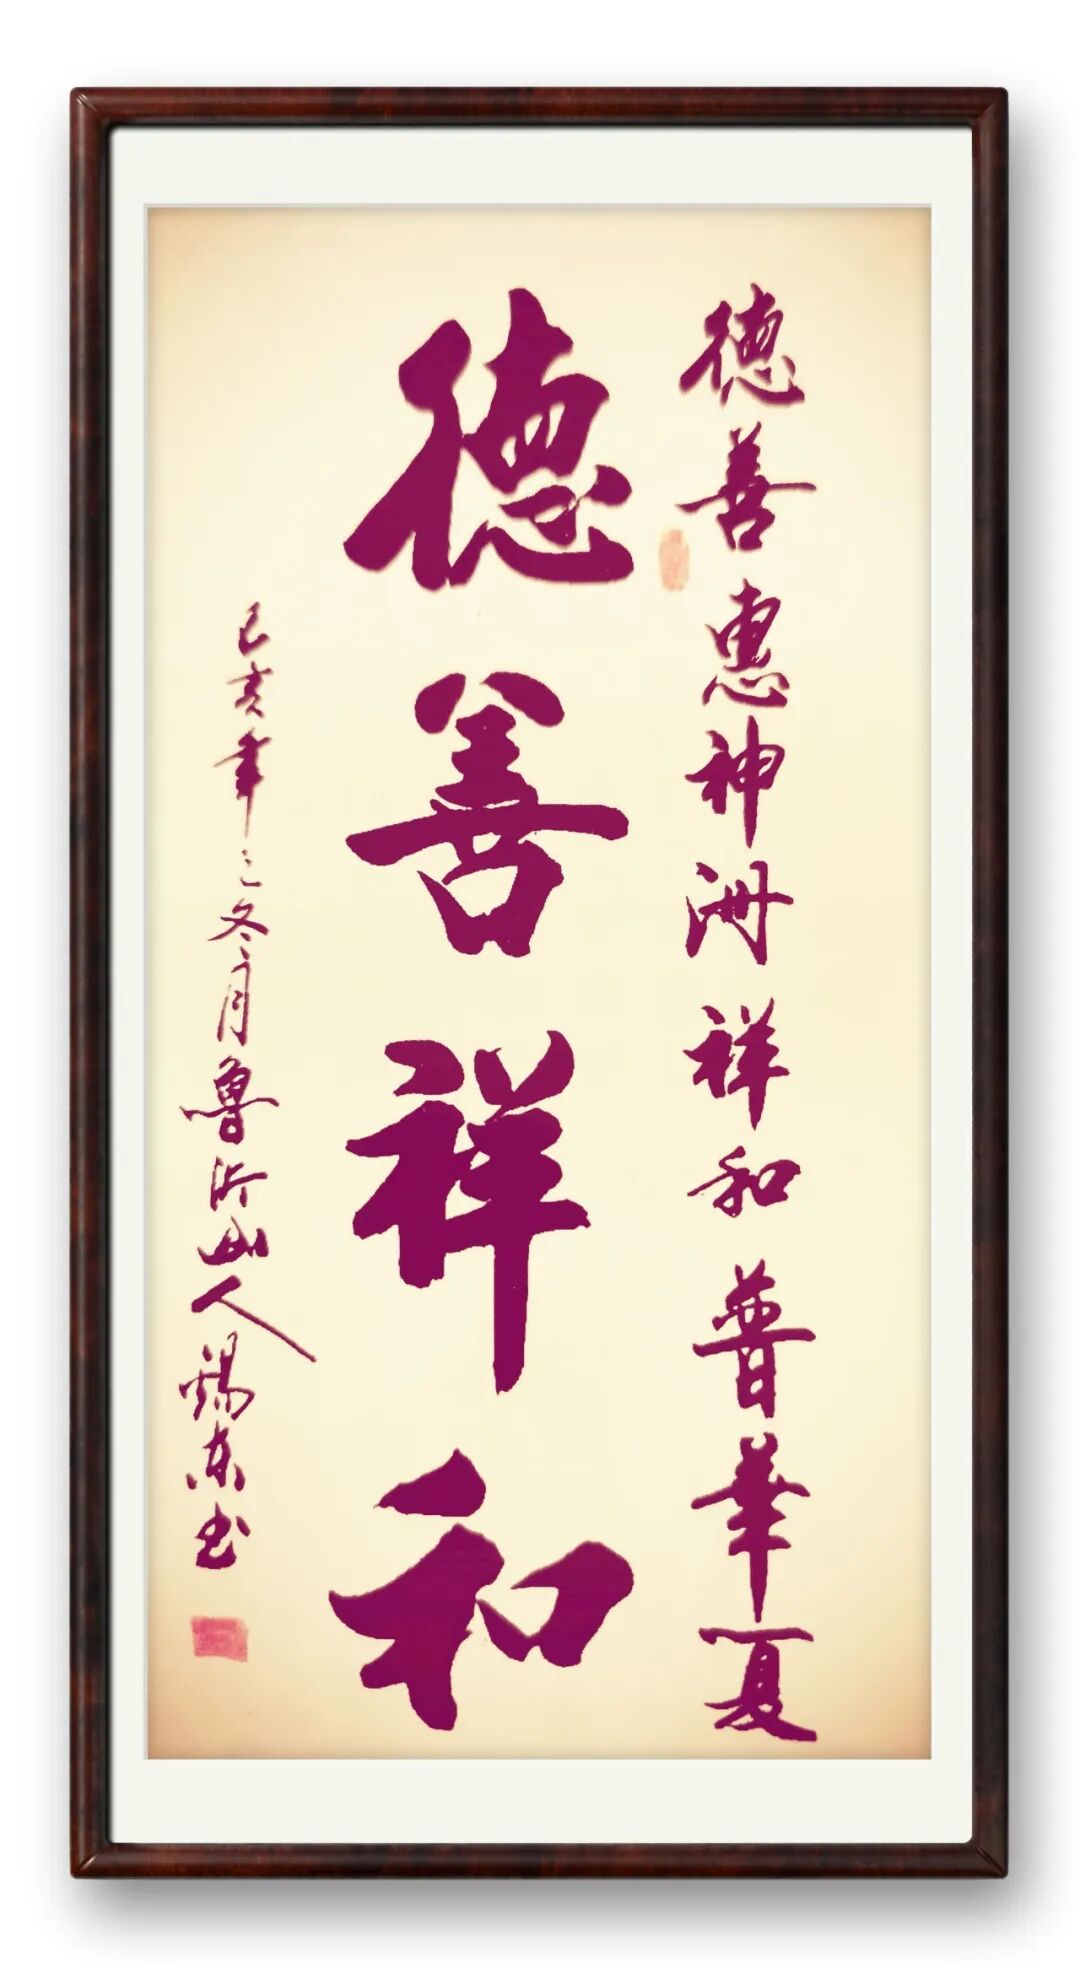 德善惠神洲祥和普華夏
德善祥和
己亥年之冬月魯沂山人錫东书